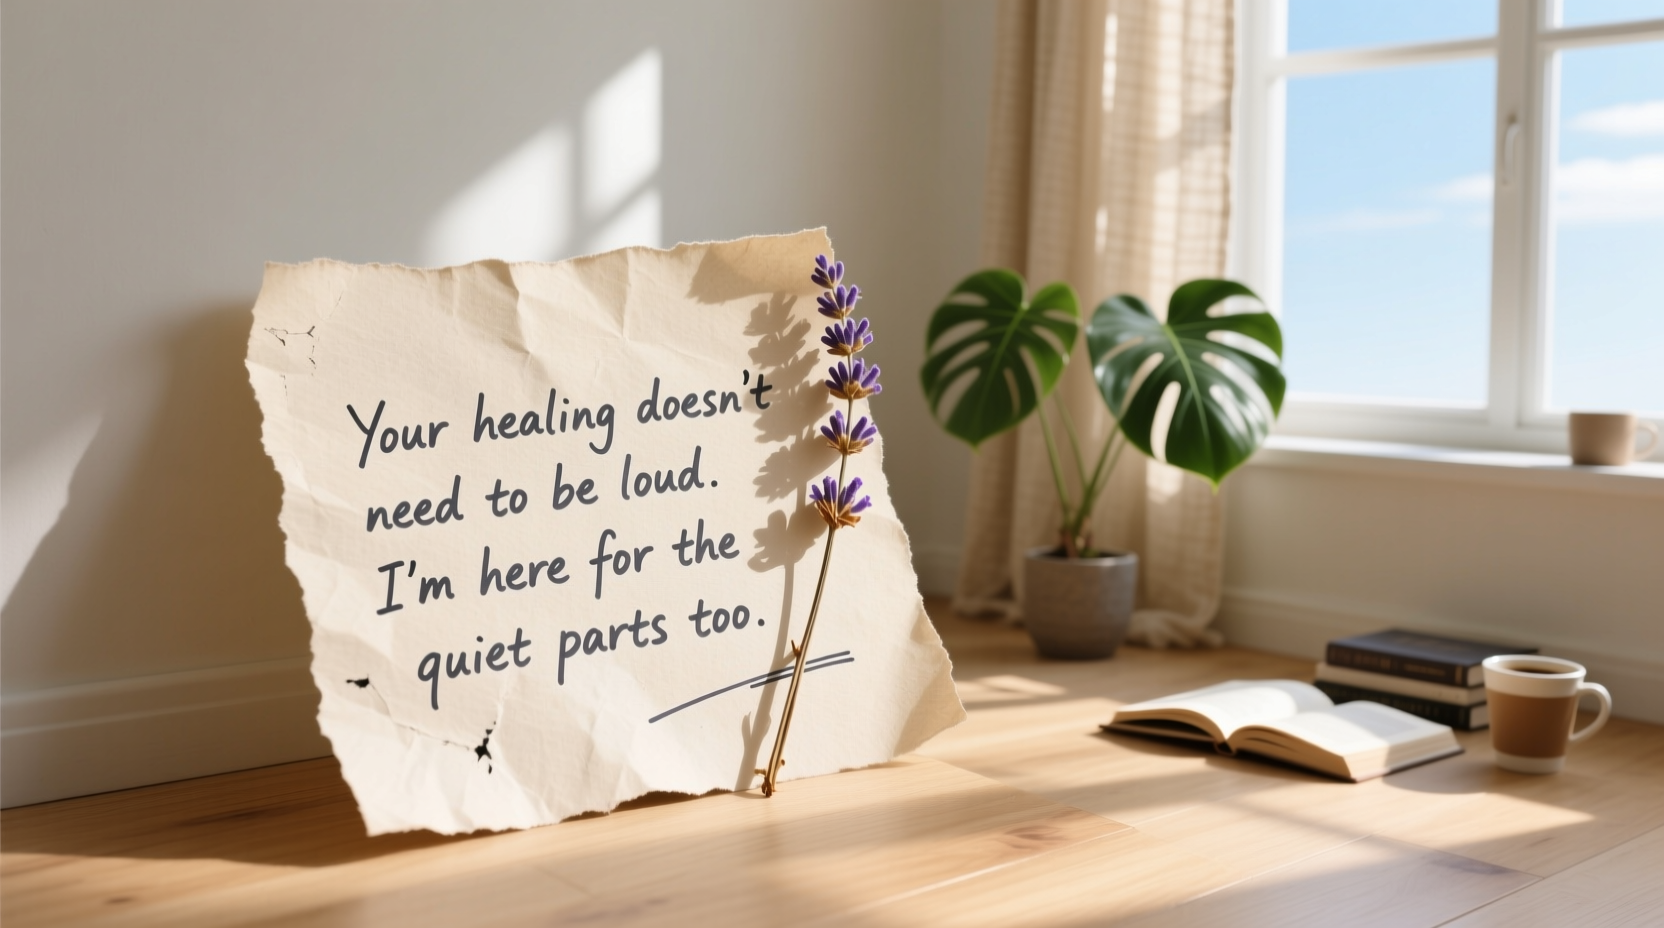 Your healing doesn't
need to be loud.
I'm here for the
quiet parts too.